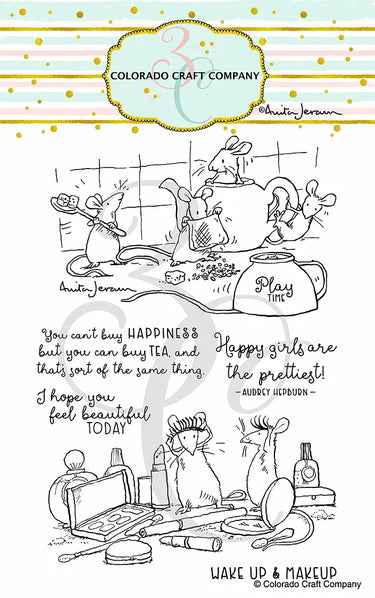 3C
COLORADO CRAFT COMPANY
©Anita Jeram
Anita Jeram
Play
TIME
You can't buy HAPPINESS
but you can buy TEA, and
that's sort of the same thing.
Happy girls are
the prettiest!
- AUDREY HEPBURN -
I hope you
feel beautiful
TODAY
WAKE UP & MAKEUP
© Colorado Craft Company